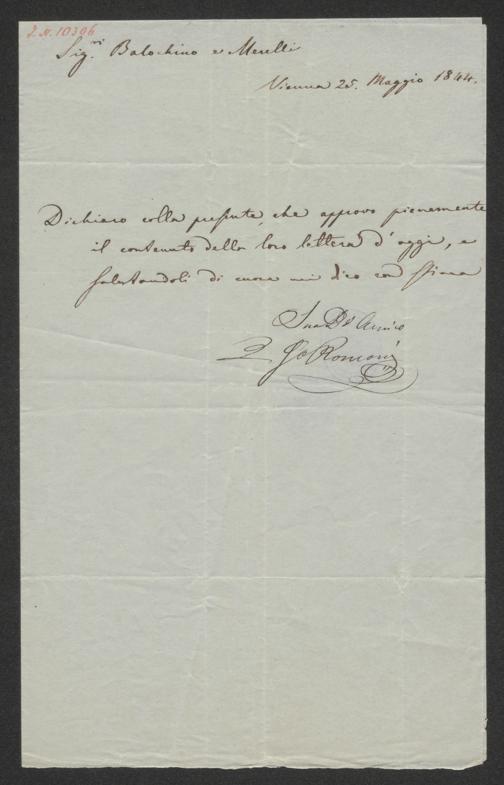 I.N. 10396
Sig.ri Balochino e Merelli
Vienna 25. Maggio 1844.
Dichiaro colla presente, che approvo pienamente
il contenuto della loro lettera d'oggi, e
salutandoli di cuore mi dico con stima
Suo Dº Amico
Romani